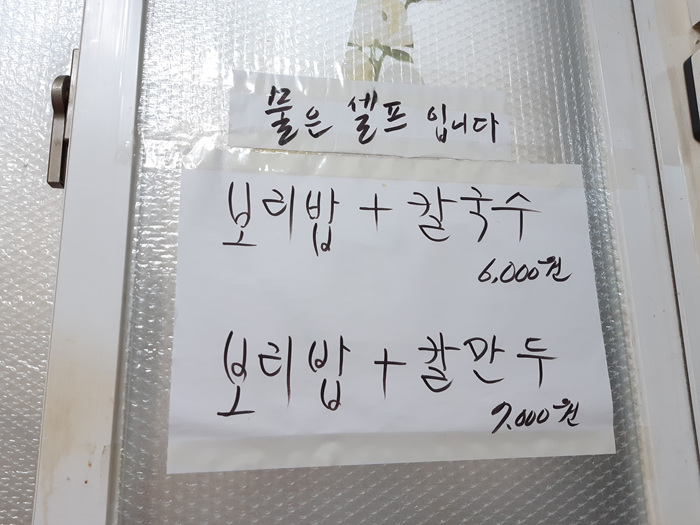 물은 셀프 입니다
보리밥 + 칼국수
6,000원
보리밥 + 칼만두
7,000원